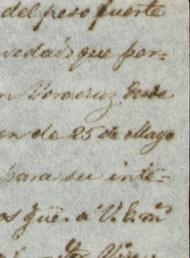 del peso fuerte
vedad que por-
n Veracruz desde
en de 25 de Mayo
para su inte-
os que. a V. E. m.